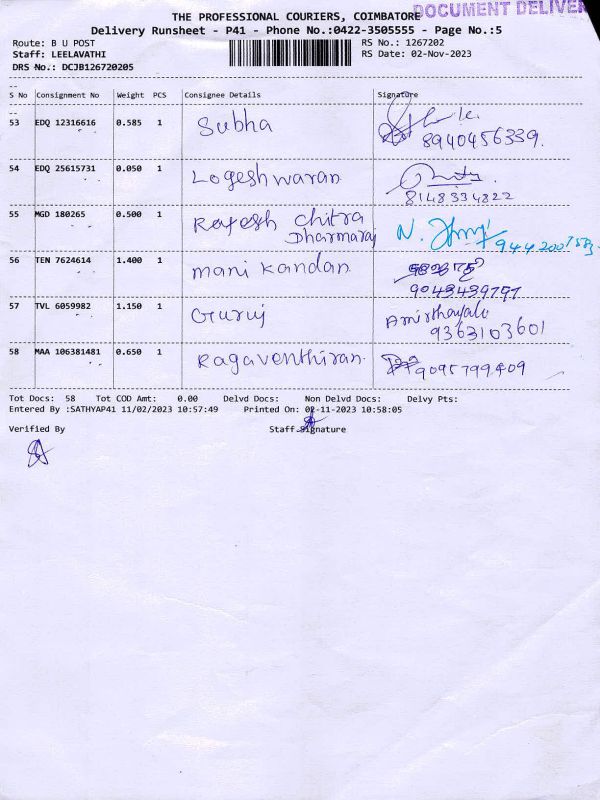 THE PROFESSIONAL COURIERS, COIMBATORE
DOCUMENT DELIVER
Delivery Runsheet - P41 - Phone No.:0422-3505555 - Page No.:5
Route: B U POST
RS No.: 1267202
Staff: LEELAVATHI
RS Date: 02-Nov-2023
DRS No.: DCJB126720205
S No Consignment No Weight PCS Consignee Details Signature
53 EDQ 12316616 0.585 1 Subha
8940456339.
54 EDQ 25615731 0.050 1 Logeshwaran
8148334822
55 MGD 180265 0.500 1 Rajesh chitra
Dharmaraj
56 TEN 7624614 1.400 1 mani kandan
9043439797
57 TVL 6059982 1.150 1 Guruj Amirthayalo
9363103601
58 MAA 106381481 0.650 1 Ragaventhiran. 9095799409
Tot Docs: 58 Tot COD Amt: 0.00 Delvd Docs: Non Delvd Docs: Delvy Pts:
Entered By :SATHYAP41 11/02/2023 10:57:49 Printed On: 02-11-2023 10:58:05
Verified By Staff Signature